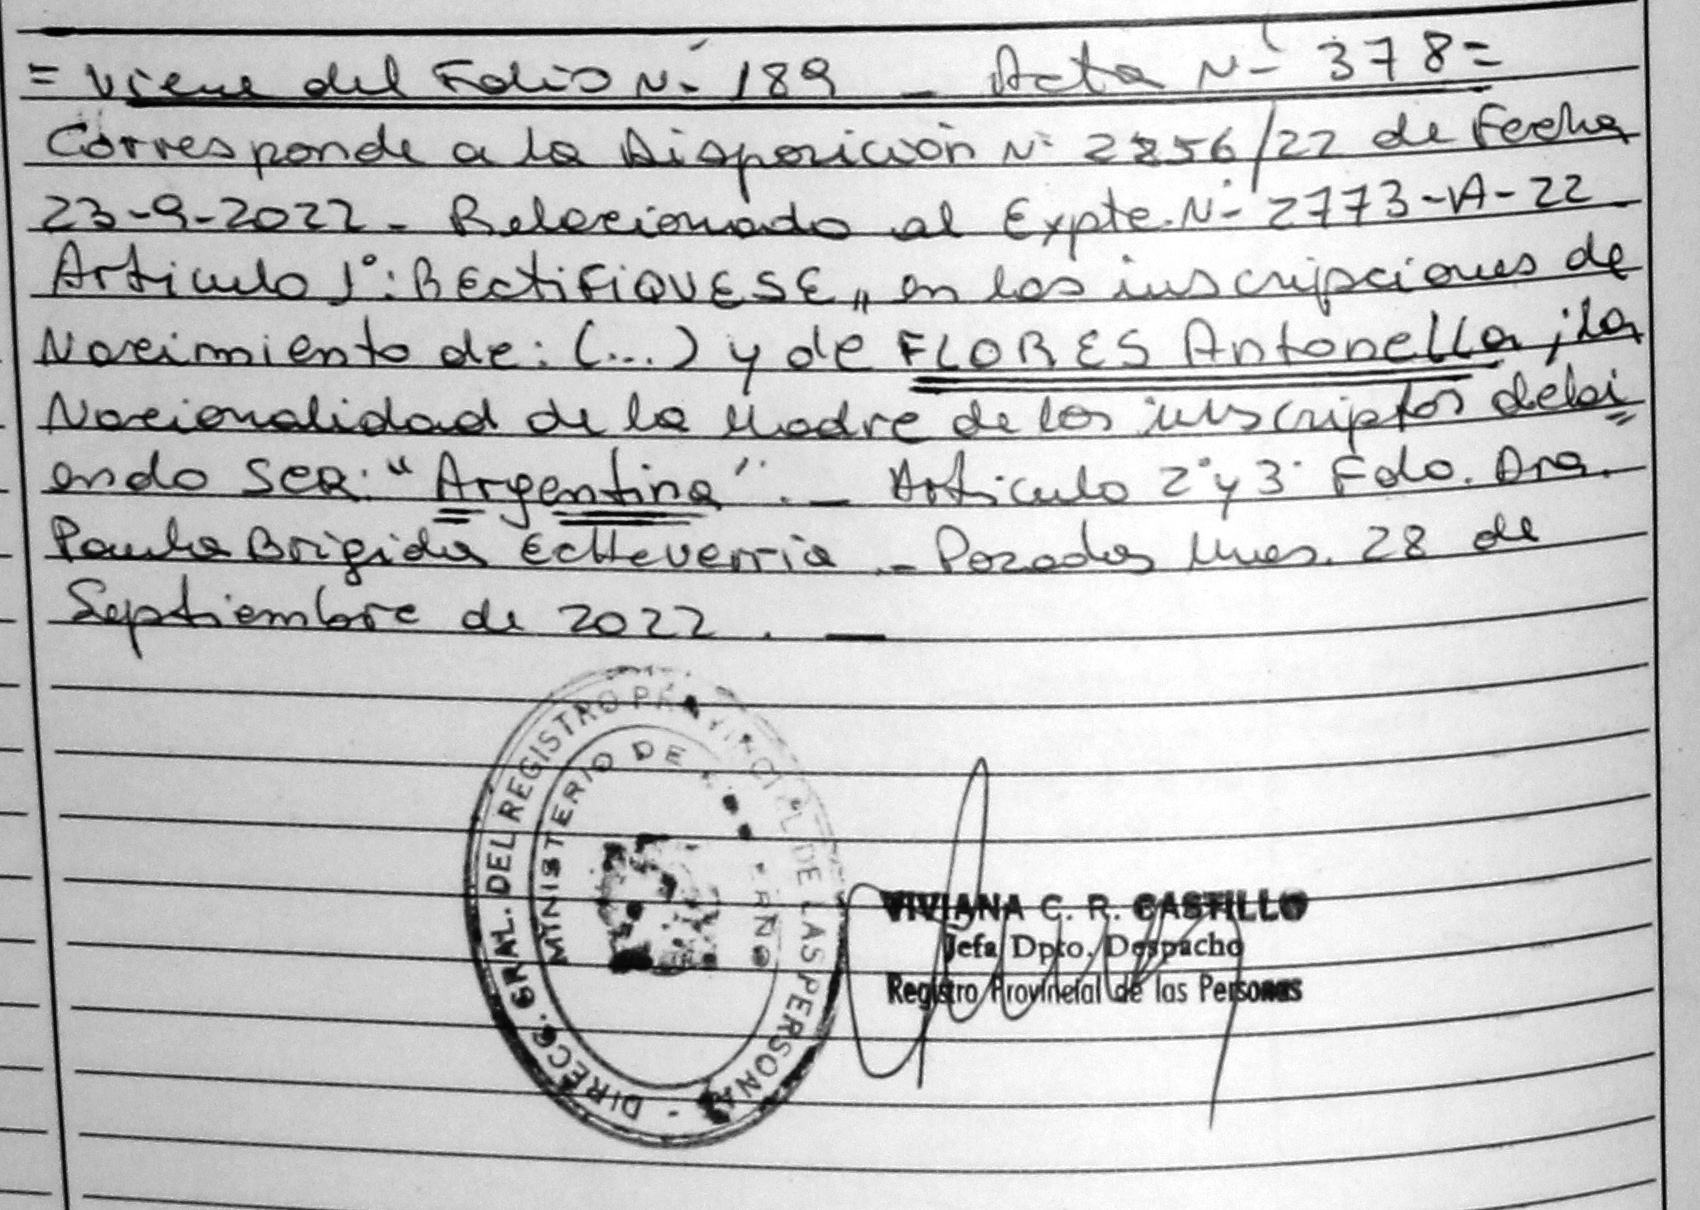 = Viene del Folio N- 189 _ Acta N- 378=
Corresponde a la Disposición N° 2256/22 de Fecha
23-9-2022_ Relacionado al Expte. N- 2773-VA-22_
Artículo 1°: RECtiFiQUESE,, en las inscripciones de
Nacimiento de: (...) y de FLORES Antonella, ; la
Nacionalidad de la Madre de los inscriptos debi
endo Ser: "Argentina"._ Artículo 2° y 3° Fdo. Dra.
Paula Brigida Echeverria _ Posadas Mnes. 28 de
Septiembre de 2022 . _
DIRECC. GRAL. DEL REGISTRO PROVINCIAL DE LAS PERSONAS -
MINISTERIO DE
VIVIANA C. R. CASTILLO
Jefa Dpto. Despacho
Registro Provincial de las Personas